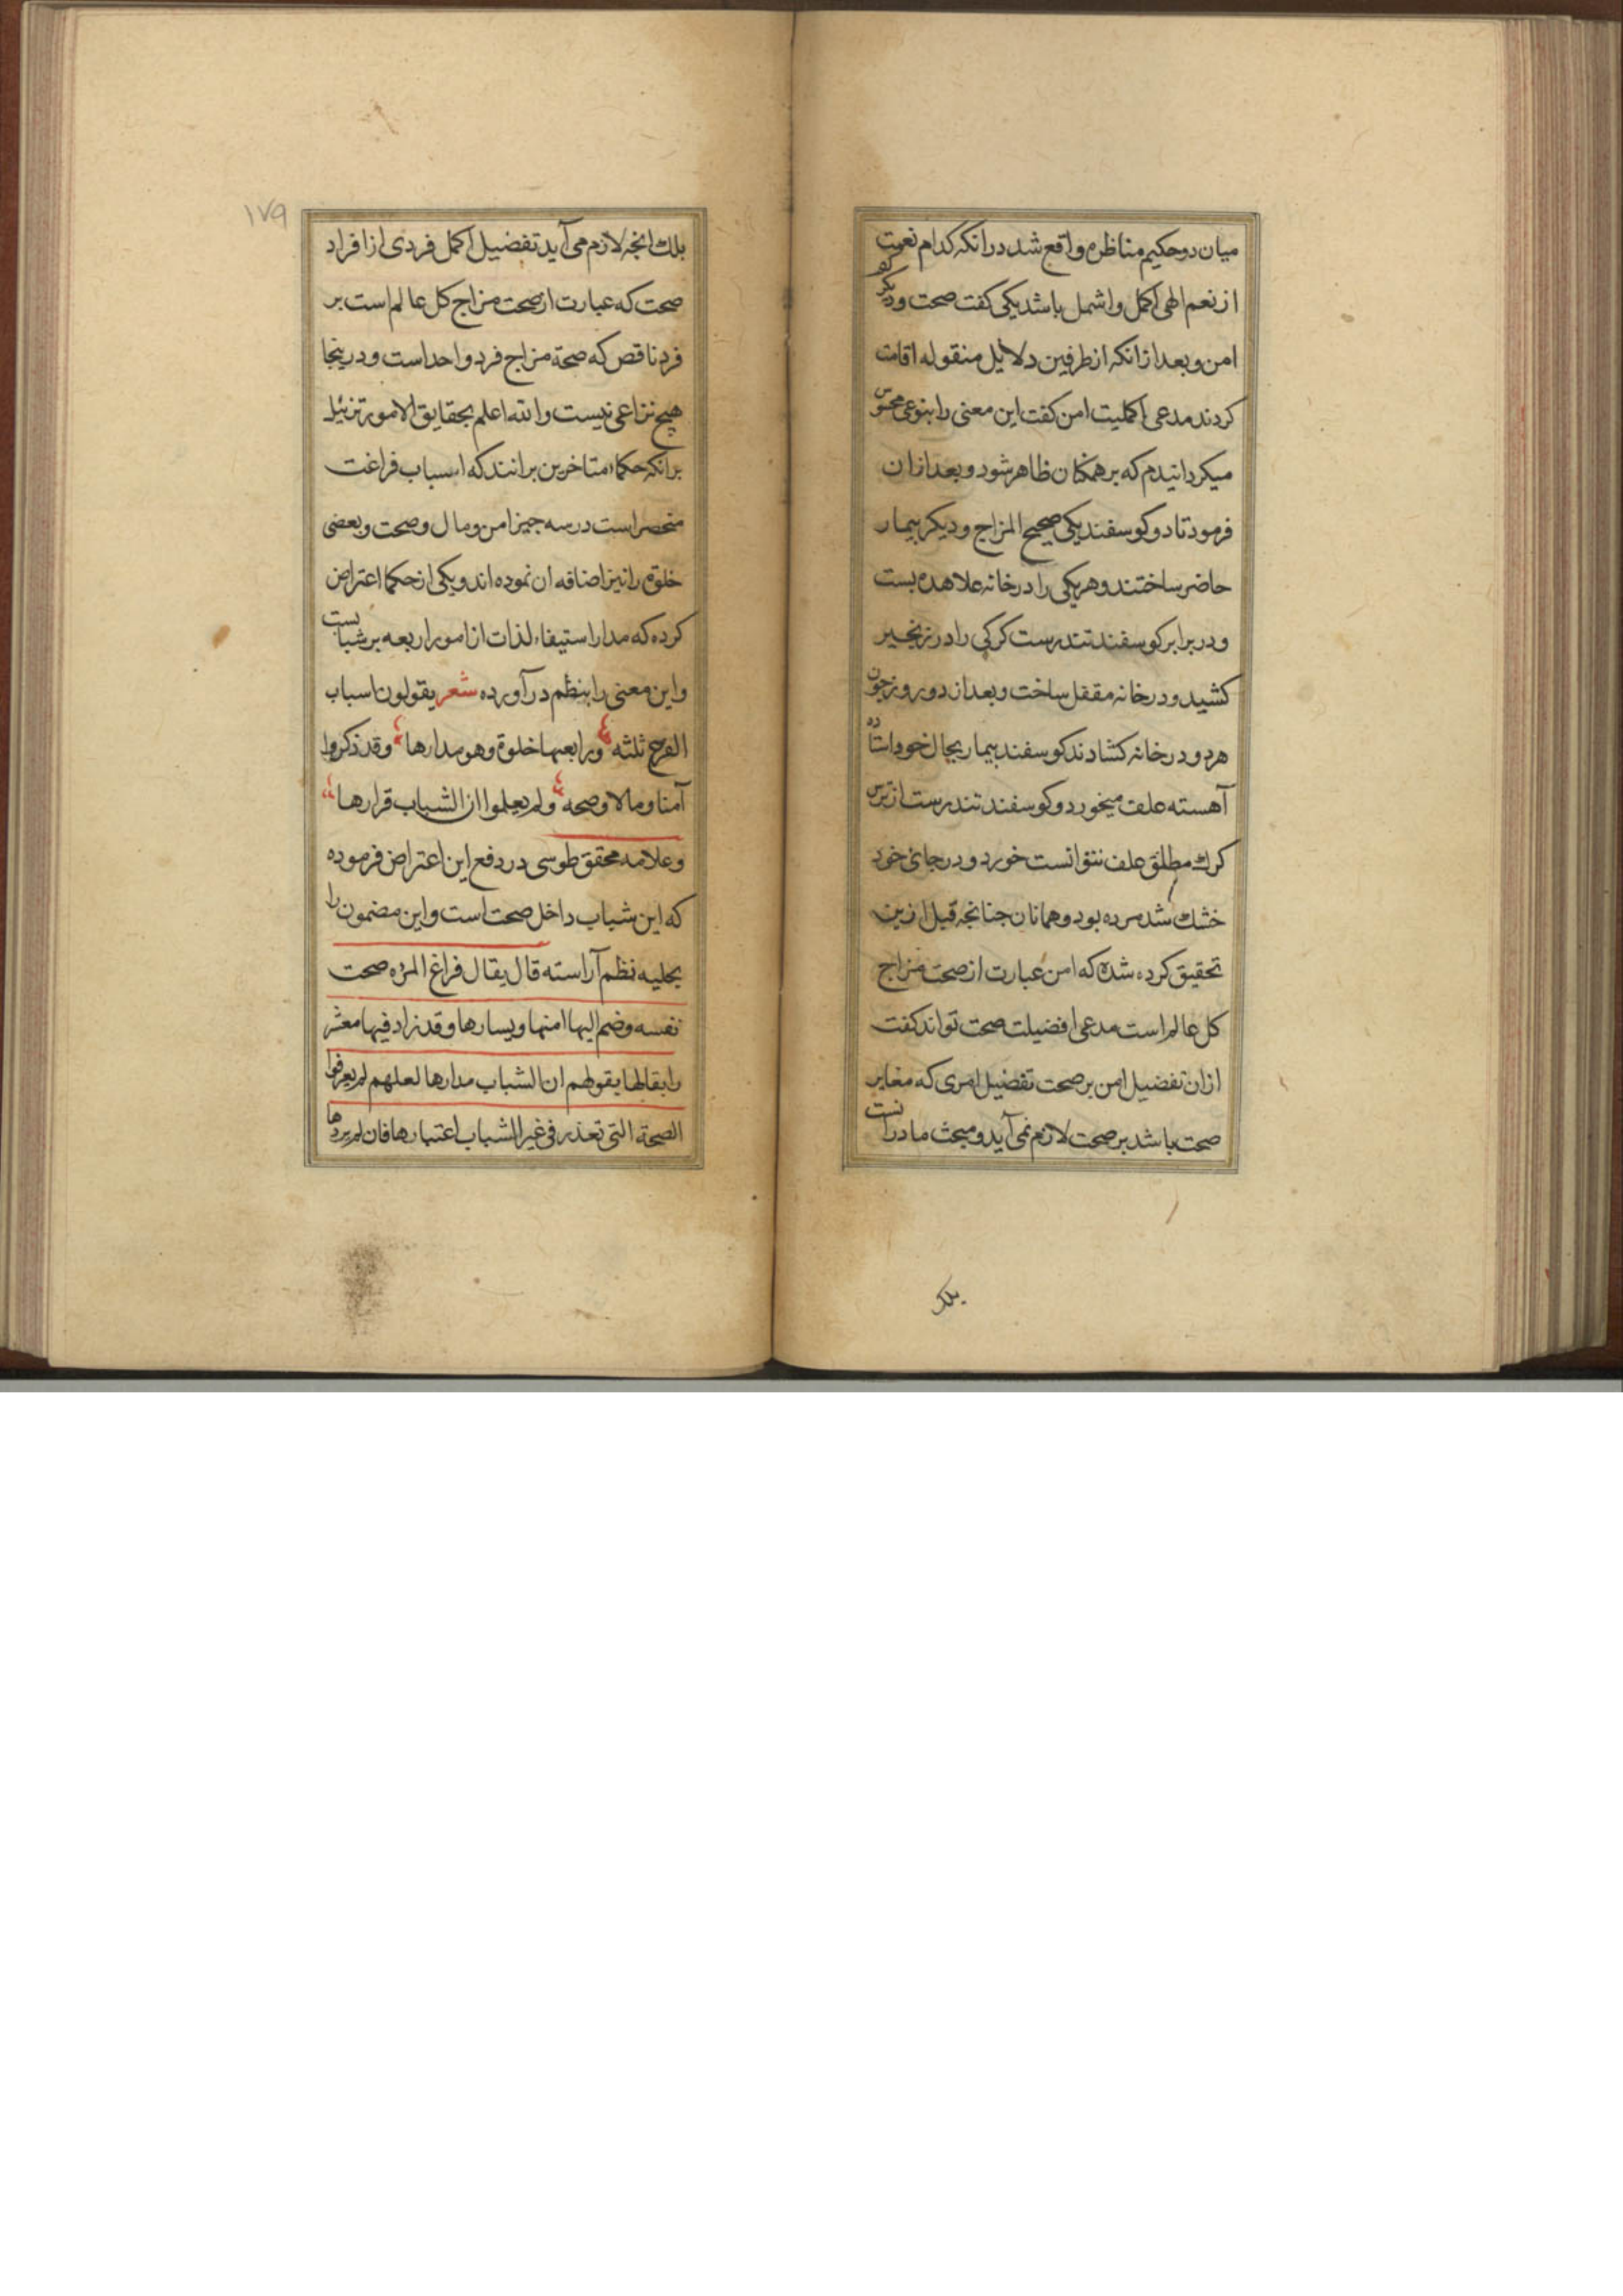 میان دو حکیم مناظره واقع شد در انکه کدام نعمت
از نعم الهی اکمل و اشمل باشد یکی کفت صحت و دیکر کفت
امن و بعد از انکه از طرفین دلایل منقوله اقامت
کردند مدعی اکملیت امن کفت این معنی را بنوعی محسوس
میکردانیدم که بر همکنان ظاهر شود و بعد از ان
فرمود تا دو کوسفند یکی صحیح المزاج و دیکر بیمار
حاضر ساختند و هر یکی را در خانه علاهده بست
و در برابر کوسفند تندرست کرکی را در زنجیر
کشید و در خانه مقفل ساخت و بعد از دو روز چون
هر دو در خانه کشادند کوسفند بیمار بحال خود استاده
آهسته علف میخورد و کوسفند تندرست از ترس
کرک مطلق علف نتوانست خورد و در جای خود
خشک شد مرده بود و همانان جنانجه قبل ازین
تحقیق کرده شده که امن عبارت از صحت مزاج
کل عالم است مدعی افضیلت صحت تواند کفت
از ان تفضیل امن بر صحت تفضیل امری که مغایر
صحت باشد بر صحت لازم نمی آید و مبحث ما در انست
بلک
۱۷۹
بلک انجه لازم می آید تفضیل اکمل فردی از افراد
صحت که عبارت از صحت مزاج کل عالم است بر
فرد ناقص که صحة مزاج فرد واحد است و درینجا
هیچ نزاعی نیست والله اعلم بحقایق الامور تزئیل
بر انکه حکماء متاخرین برانند که اسباب فراغت
منحصر است در سه جیز امن و مال و صحت و بعضی
خلوة را نیز اضافه ان نموده اند و یکی از حکما اعتراض
کرده که مدار استیفاء لذات از امور اربعه بر شبابست
و این معنی را بنظم در آورده شعر یقولون اسباب
الفرح ثلثه و رابعها خلوة وهو مدارها وقد ذکروا
آمنا ومالا وصحه ولم یعلموا ان الشباب قرارها
و علامه محقق طوسی در دفع این اعتراض فرموده
که این شباب داخل صحت است و این مضمون را
بحلیه نظم آراسته قال یقال فراغ المرٔه صحت
نفسه وضم الیها امنها ویسارها وقد زاد فیها معشر
رابقالها یقولهم ان الشباب مدارها لعلهم لم یعرفوا
الصحة التی تعذر فی غیر الشباب اعتبارها فان لم یردها